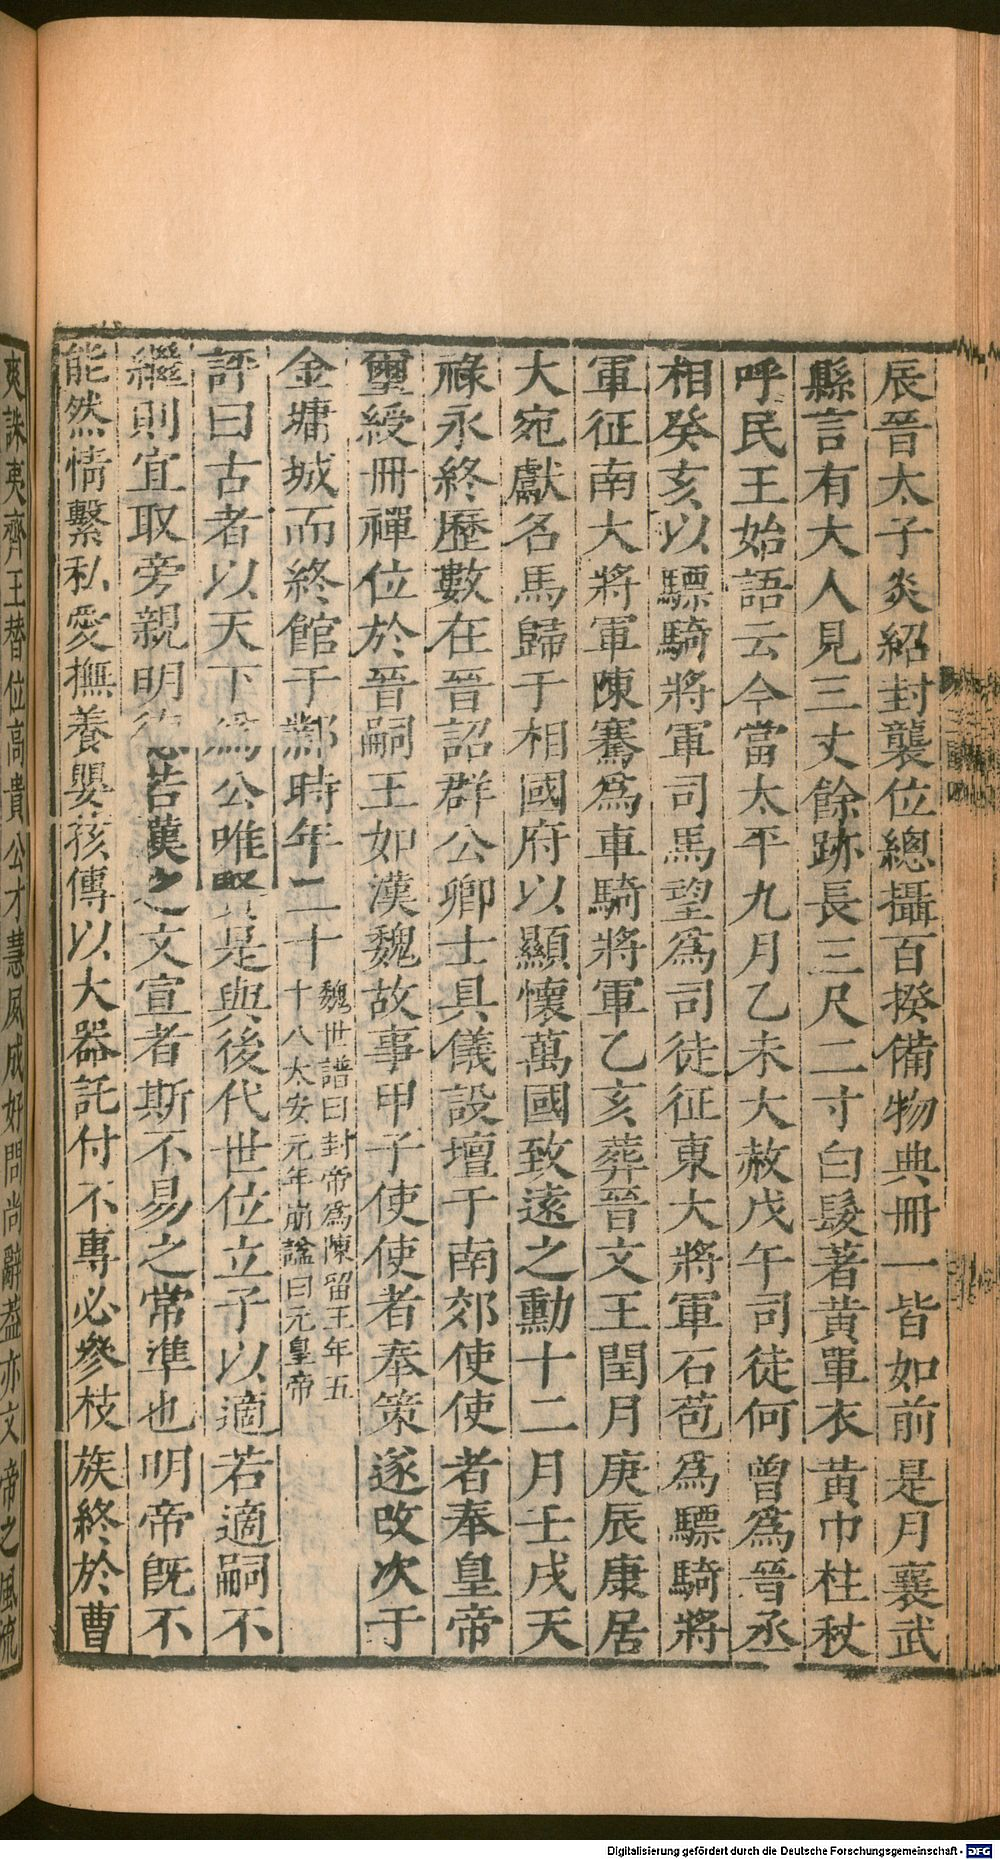 辰晉太子炎紹封襲位總攝百揆備物典冊一皆如前是月襄武
縣言有大人見三丈餘跡長三尺二寸白髮著黃單衣黃巾柱杖
呼民王始語云今當太平九月乙未大赦戊午司徒何曾爲晉丞
相癸亥以驃騎將軍司馬望爲司徒征東大將軍石苞爲驃騎將
軍征南大將軍陳騫爲車騎將軍乙亥葬晉文王閏月庚辰康居
大宛獻名馬歸于相國府以顯懷萬國致遠之勳十二月壬戌天
祿永終歷數在晉詔群公卿士具儀設壇于南郊使使者奉皇帝
璽綬冊禪位於晉嗣王如漢魏故事甲子使使者奉策遂改次于
金墉城而終館于鄴時年二十
魏世譜曰封帝爲陳留王年五
十八太安元年崩諡曰元皇帝
評曰古者以天下爲公唯賢是與後代世位立子以適若適嗣不
繼則宜取旁親明德若漢之文宣者斯不易之常準也明帝旣不
能然情繫私愛撫養嬰孩傳以大器託付不專必參枝族終於曹
爽誅夷齊王替位高貴公才慧夙成好問尚辭葢亦文帝之風流
Digitalisierung gefördert durch die Deutsche Forschungsgemeinschaft - DFG